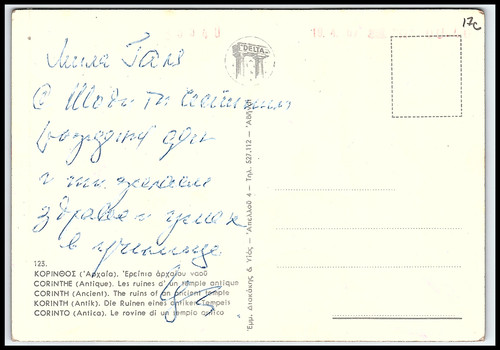 DELTA
Мила Галя
С
ти честитим
рождения ден
и ти желаем
здраве и успех
в училище
123.
ΚΟΡΙΝΘΟΣ (Ἀρχαία). Ἐρείπια ἀρχαίου ναοῦ
CORINTHE (Antique). Les ruines d'un temple antique
CORINTH (Ancient). The ruins of an ancient temple
KORINTH (Antik). Die Ruinen eines antiken Tempels
CORINTO (Antica). Le rovine di un tempio antico
Ἐμμ. Διακάκης & Υἱός - Ἀπελλοῦ 4 - Τηλ. 527.112 - Ἀθῆναι